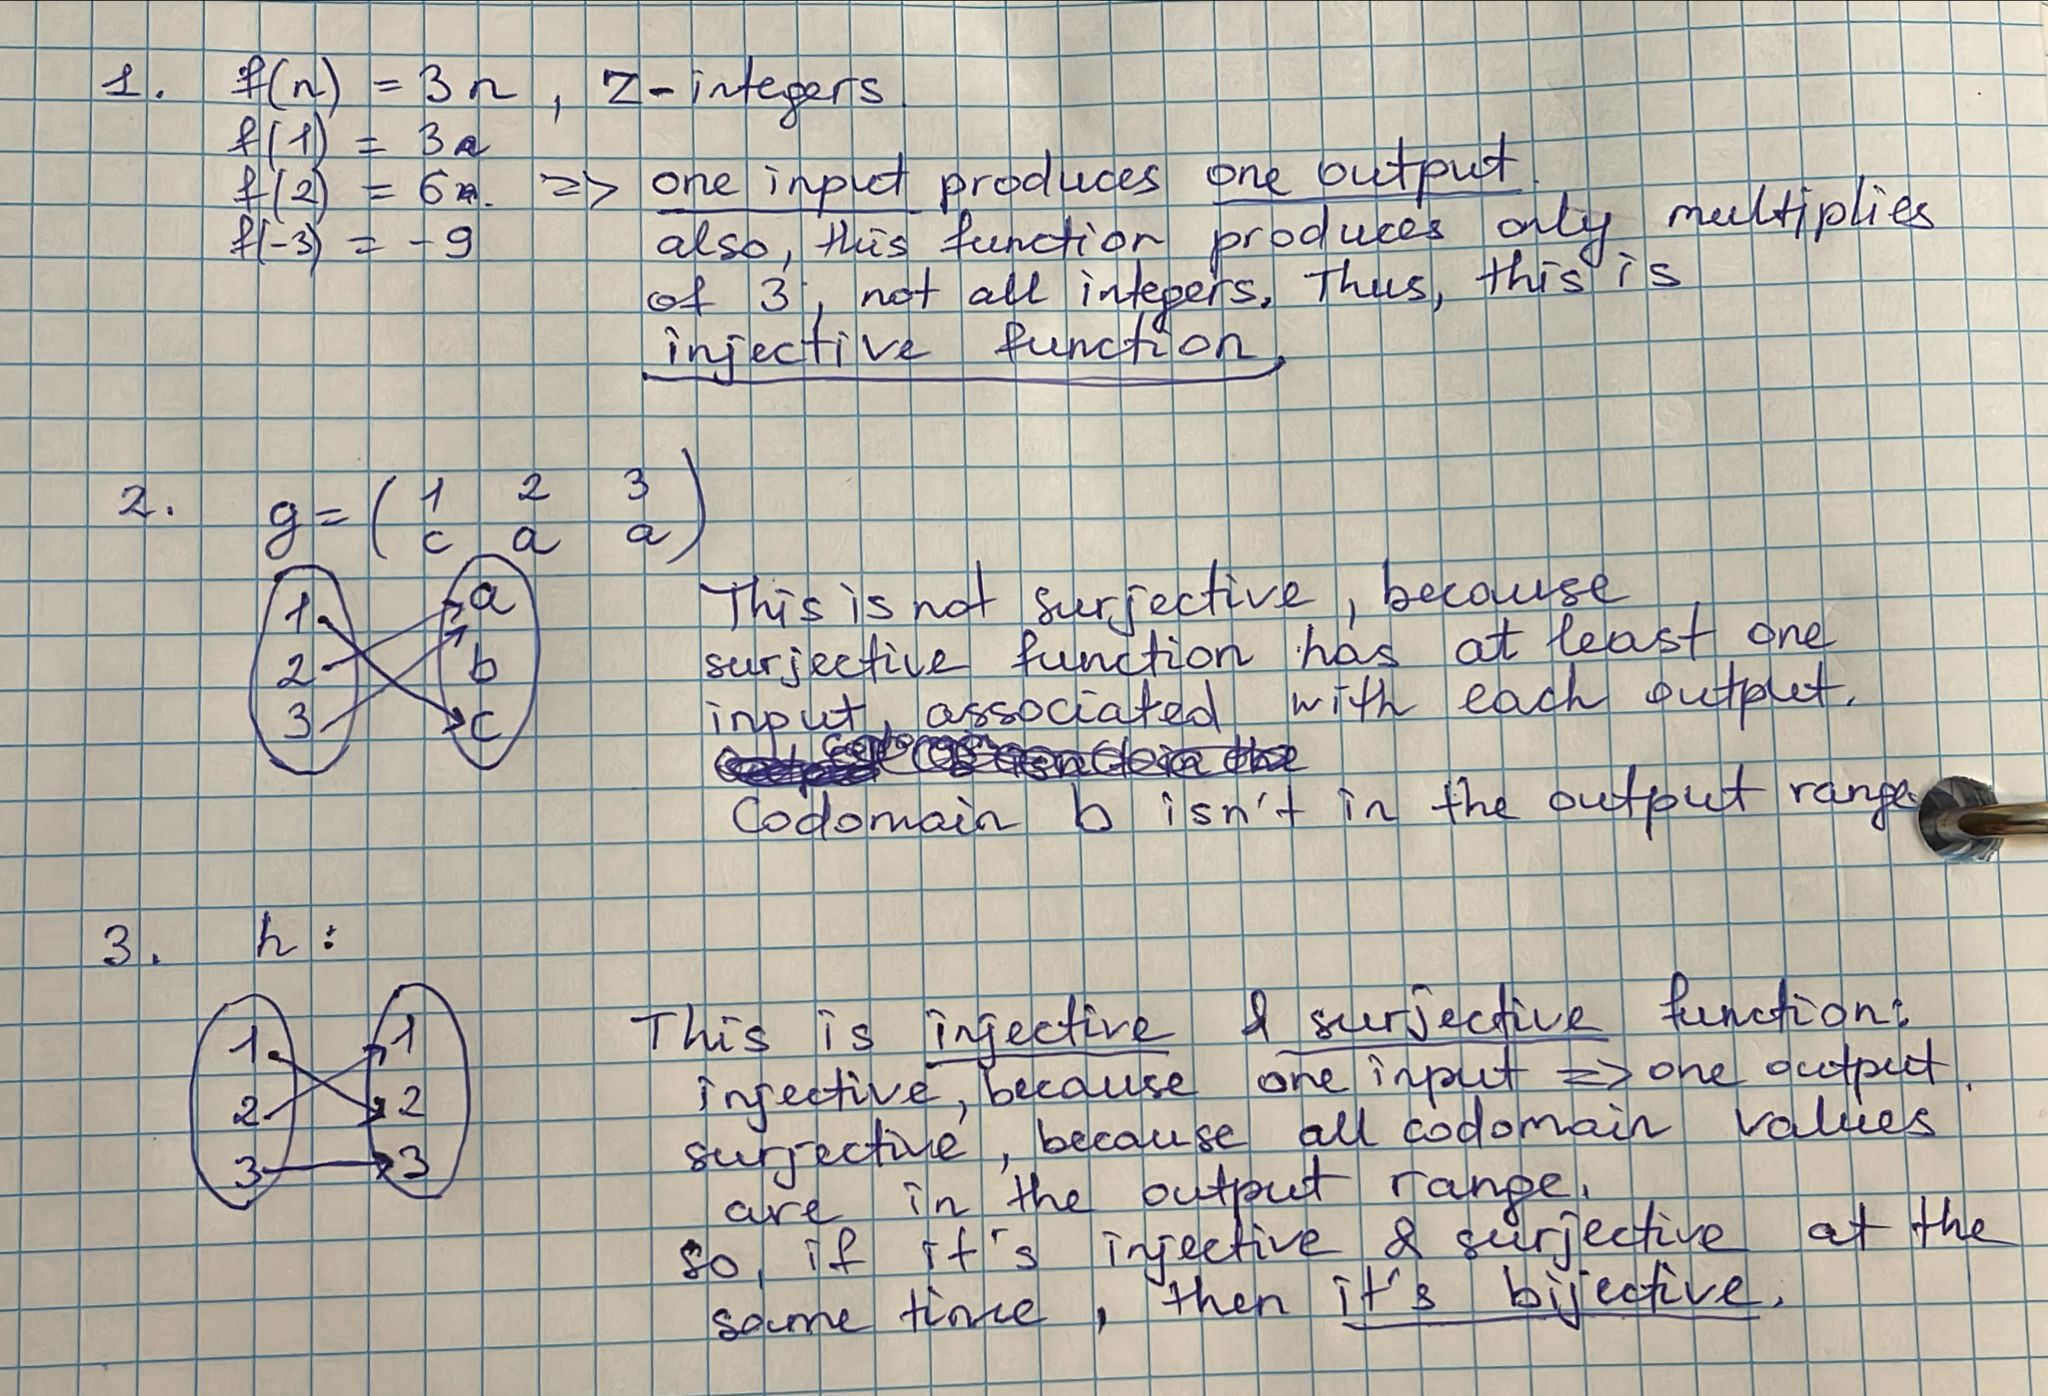 1. f(n) = 3n, Z-integers.
f(1) = 3
f(2) = 6 => one input produces one output.
f(-3) = -9 also, this function produces only multiplies
of 3, not all integers. Thus, this is
injective function.
2. g = ( 1 2 3
c a a )
1 a
2 b
3 c
This is not surjective, because
surjective function has at least one
input, associated with each output.
Codomain b isn't in the output range
3. h:
1 1
2 2
3 3
This is injective & surjective function:
injective, because one input => one output.
surjective, because all codomain values
are in the output range.
so, if it's injective & surjective at the
same time, then it's bijective.